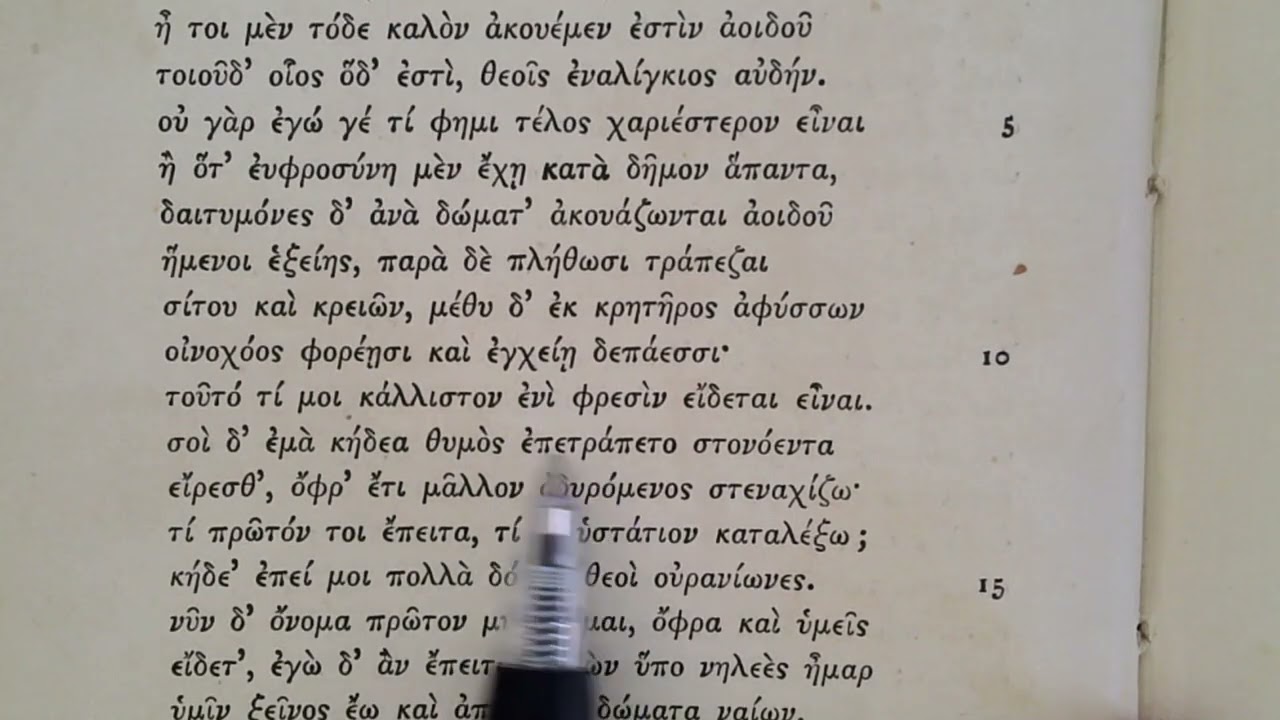 ἦ τοι μὲν τόδε καλὸν ἀκουέμεν ἐστὶν ἀοιδοῦ
τοιοῦδ’ οἷος ὅδ’ ἐστὶ, θεοῖς ἐναλίγκιος αὐδήν.
οὐ γὰρ ἐγώ γέ τί φημι τέλος χαριέστερον εἶναι 5
ἢ ὅτ’ ἐυφροσύνη μὲν ἔχῃ κατὰ δῆμον ἅπαντα,
δαιτυμόνες δ’ ἀνὰ δώματ’ ἀκουάζωνται ἀοιδοῦ
ἥμενοι ἑξείης, παρὰ δὲ πλήθωσι τράπεζαι
σίτου καὶ κρειῶν, μέθυ δ’ ἐκ κρητῆρος ἀφύσσων
οἰνοχόος φορέῃσι καὶ ἐγχείῃ δεπάεσσι· 10
τοῦτό τί μοι κάλλιστον ἐνὶ φρεσὶν εἴδεται εἶναι.
σοὶ δ’ ἐμὰ κήδεα θυμὸς ἐπετράπετο στονόεντα
εἴρεσθ’, ὄφρ’ ἔτι μᾶλλον στεναχίζω·
τί πρῶτόν τοι ἔπειτα, τί ὑστάτιον καταλέξω;
κήδε’ ἐπεί μοι πολλὰ θεοὶ οὐρανίωνες. 15
νῦν δ’ ὄνομα πρῶτον ὄφρα καὶ ὑμεῖς
εἴδετ’, ἐγὼ δ’ ἂν ὕπο νηλεὲς ἦμαρ
ὑμῖν ξεῖνος ἔω καὶ δώματα ναίων.